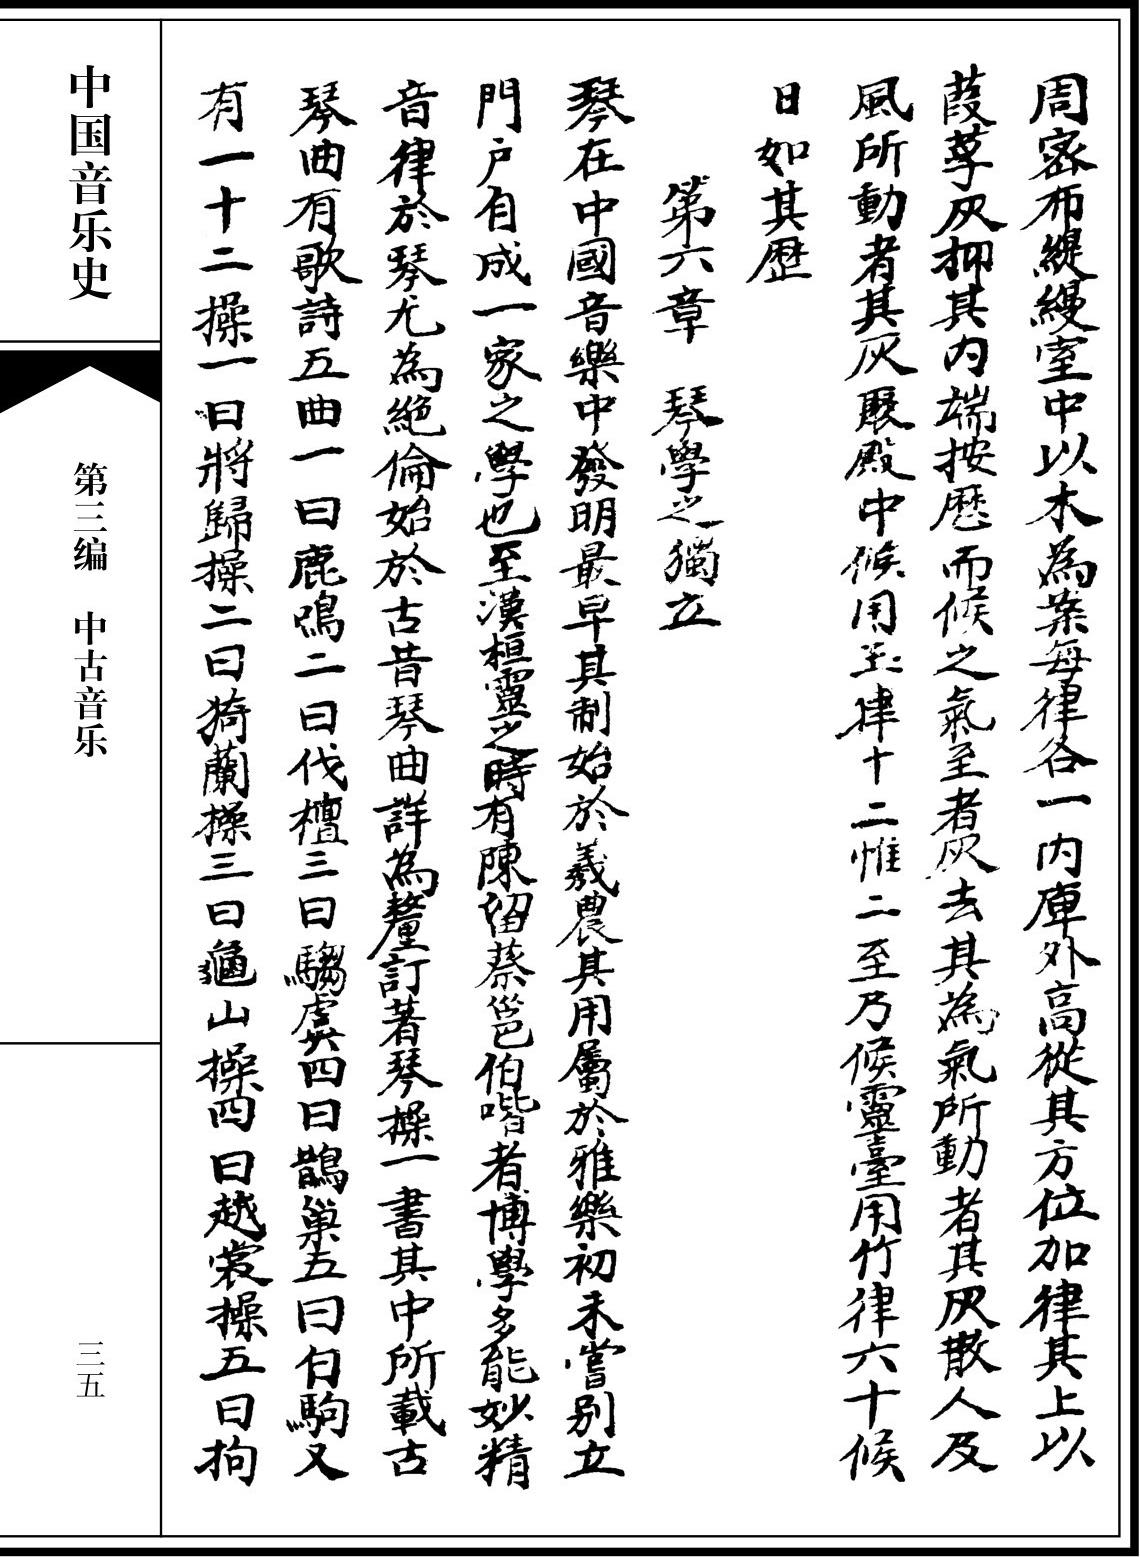 周密布緹縵室中以木為案每律各一內庳外高從其方位加律其上以
葭莩灰抑其內端按歷而候之氣至者灰去其為氣所動者其灰散人及
風所動者其灰聚殿中候用玉律十二惟二至乃候靈臺用竹律六十候
日如其歷
第六章 琴學之獨立
琴在中國音樂中發明最早其制始於羲農其用屬於雅樂初未嘗別立
門户自成一家之學也至漢桓靈之時有陳留蔡邕伯喈者博學多能妙精
音律於琴尤為絕倫始於古昔琴曲詳為釐訂著琴操一書其中所載古
琴曲有歌詩五曲一曰鹿鳴二曰伐檀三曰騶虞四曰鵲巢五曰白駒又
有一十二操一曰將歸操二曰猗蘭操三曰龜山操四曰越裳操五曰拘
中国音乐史
第三编 中古音乐
三五